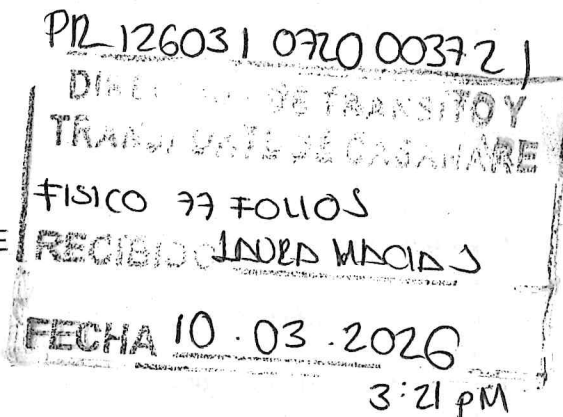 PR 126031 0720 00372 1
DIRECCION DE TRANSITO Y
TRANSPORTE DE CASANARE
FISICO 77 FOLIOS
E
RECIBIDO LAURA MACIAS
FECHA 10.03.2026
3:21 PM